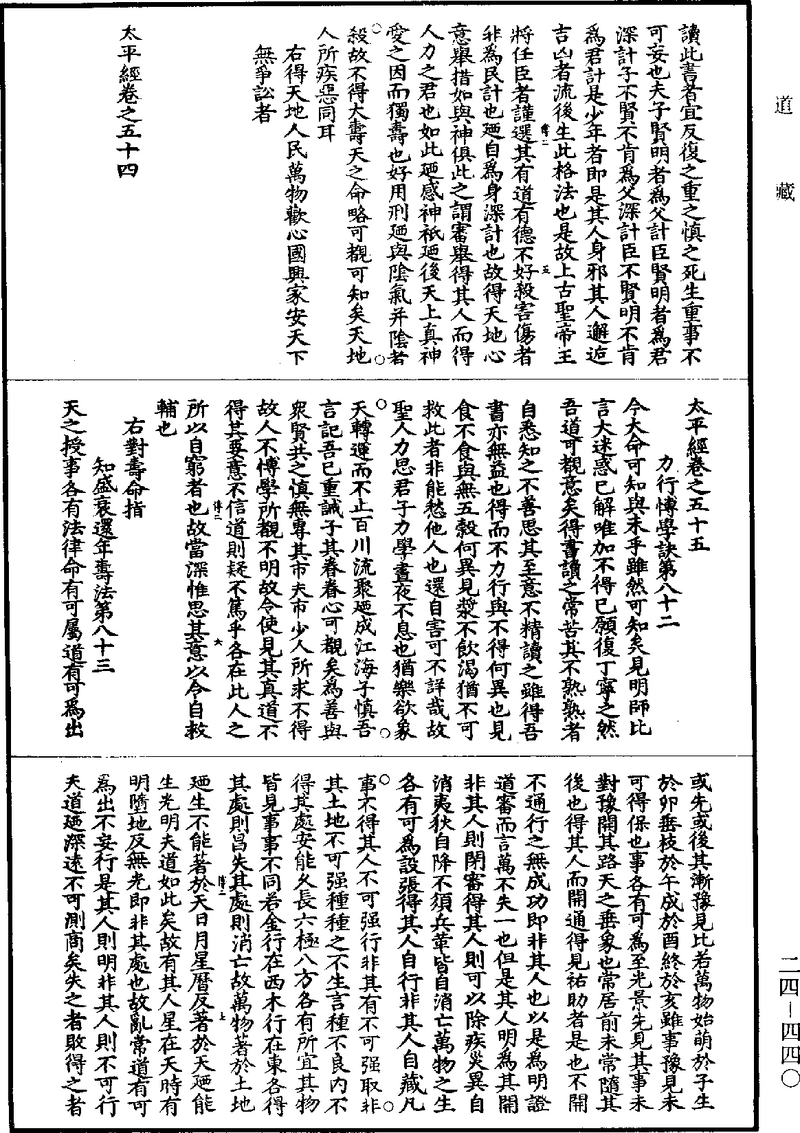 道藏
讀此書者宜反復之重之慎之死生重事不
可妄也夫子賢明者為父計臣賢明者為君
深計子不賢不肯為父深計臣不賢明不肯
為君計是少年者即是其人身邪其人邂逅
吉凶者流後生此格法也是故上古聖帝王
將任臣者謹選其有道有德不好殺害傷者
非為民計也廼自為身深計也故得天地心
意舉措如與神俱此之謂審舉得其人而得
人力之君也如此廼感神祇廼後天上真神
愛之因而獨壽也好用刑廼與陰氣并陰者
殺故不得大壽天之命略可覩可知矣天地
人所疾惡同耳
右得天地人民萬物歡心國興家安天下
無爭訟者
太平經卷之五十四
太平經卷之五十五
力行博學訣第八十二
今大命可知與未乎雖然可知矣見明師比
言大迷惑已解唯加不得已願復丁寧之然
吾道可覩意矣得書讀之常苦其不熟熟者
自悉知之不善思其至意不精讀之雖得吾
書亦無益也得而不力行與不得何異也見
食不食與無五穀何異見漿不飲渴猶不可
救此者非能愁他人也還自害可不詳哉故
聖人力思君子力學晝夜不息也猶樂欲象
天轉運而不止百川流聚廼成江海子慎吾
言記吾已重誡子其眷眷心可覩矣為善與
衆賢共之慎無專其市夫市少人所求不得
故人不博學所覩不明故令使見其真道不
得其要意不信道則疑不篤乎各在此人之
所以自窮者也故當深惟思其意以令自救
輔也
右對壽命指
知盛衰還年壽法第八十三
天之授事各有法律命有可屬道有可為出
或先或後其漸豫見比若萬物始萌於子生
於卯垂枝於午成於酉終於亥雖事豫見未
可得保也事各有可為至光景先見其事未
對豫開其路天之垂象也常居前未常隨其
後也得其人而開通得見祐助者是也不開
不通行之無成功即非其人也以是為明證
道審而言萬不失一也但是其人明為其開
非其人則閉審得其人則可以除疾災異自
消夷狄自降不須兵革皆自消亡萬物之生
各有可為設張得其人自行非其人自藏凡
事不得其人不可強行非其有不可強取非
其土地不可強種種之不生言種不良內不
得其處安能久長六極八方各有所宜其物
皆見事事不同若金行在西木行在東各得
其處則昌失其處則消亡故萬物著於土地
廼生不能著於天日月星曆反著於天廼能
生光明夫道如此矣故有其人星在天時有
明墮地反無光即非其處也故亂常道有可
為出不妄行是其人則明非其人則不可行
夫道廼深遠不可測商矣失之者敗得之者
二四-四四〇